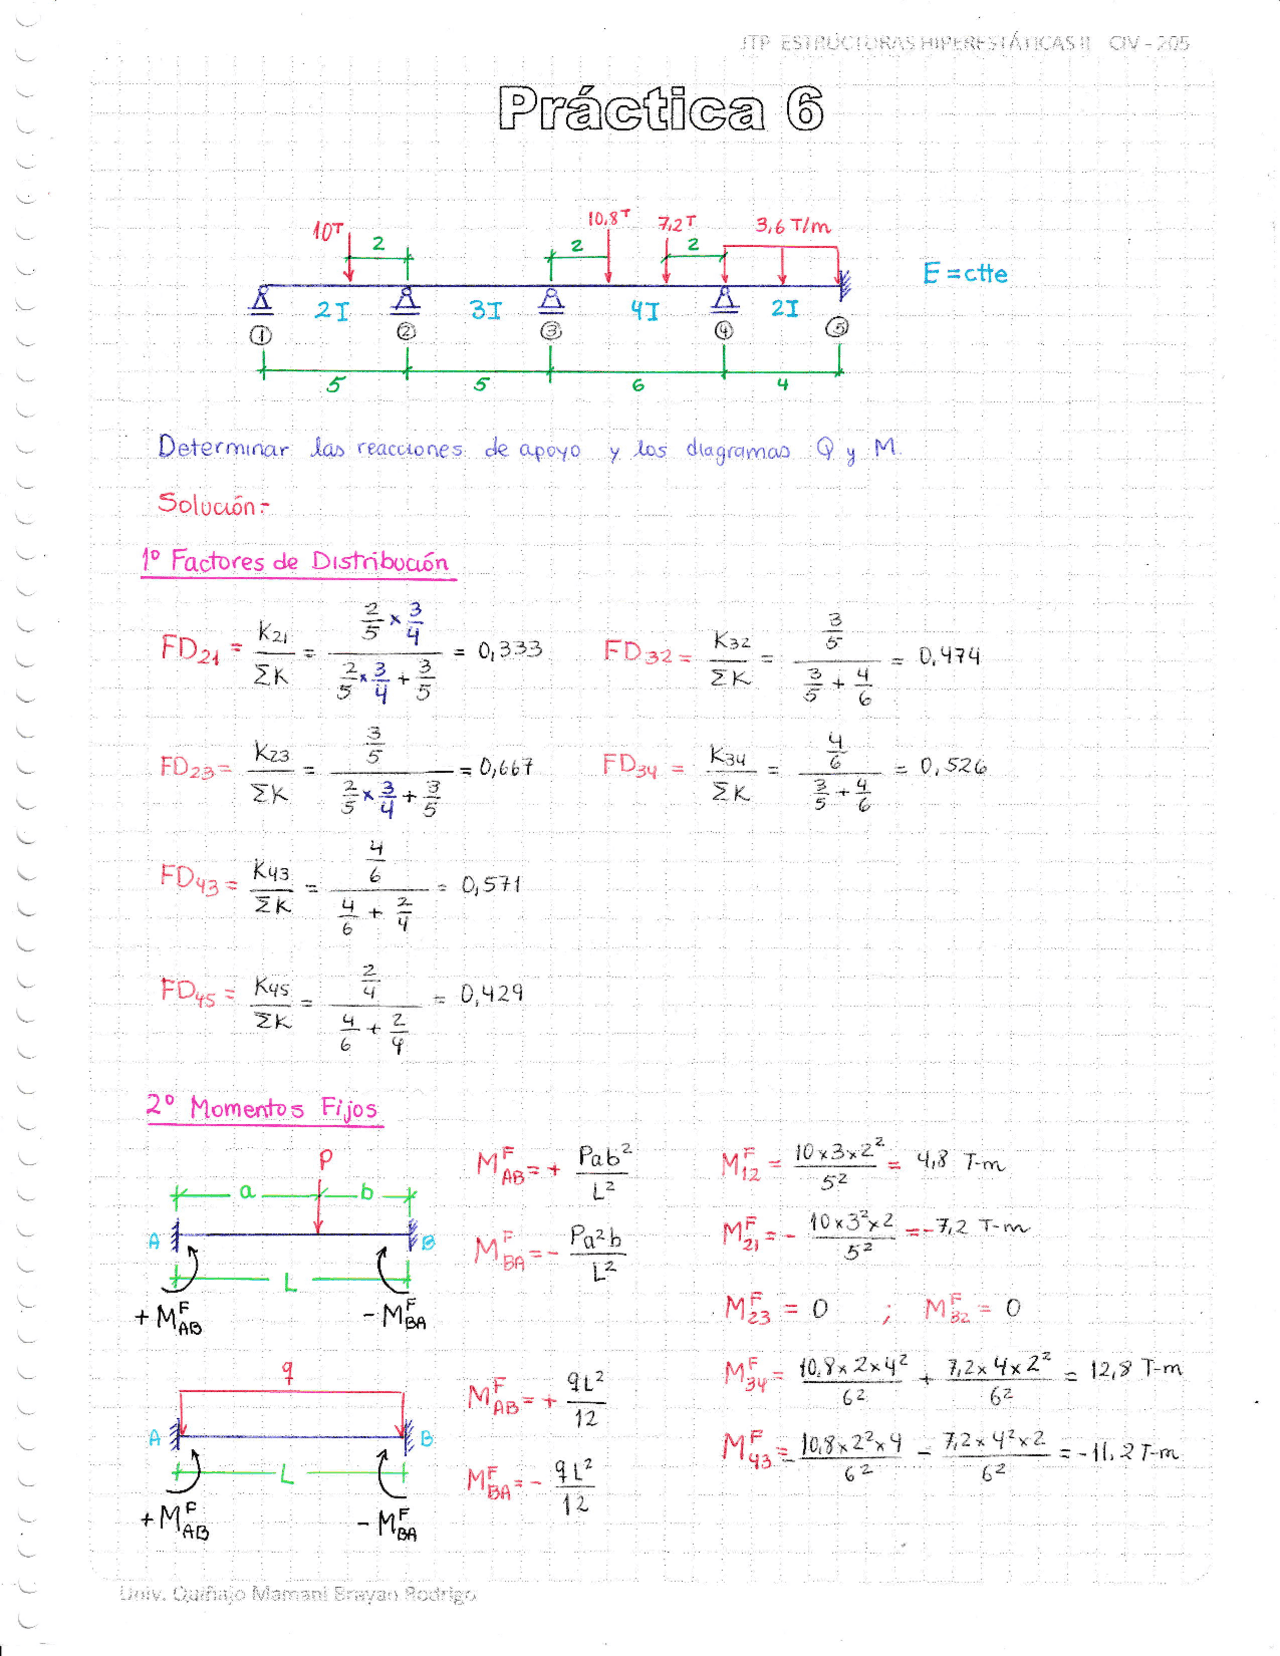 JTP ESTRUCTURAS HIPERESTÁTICAS II CIV - 205
Práctica 6
10T 2 2 10,8T 7,2T 2 3,6 T/m
E = ctte
2I 3I 4I 2I
1 2 3 4 5
5 5 6 4
Determinar las reacciones de apoyo y los diagramas Q y M.
Solución:-
1º Factores de Distribución
FD21 = K21/ΣK = (2/5 × 3/4)/(2/5 × 3/4 + 3/5) = 0,333
FD32 = K32/ΣK = (3/5)/(3/5 + 4/6) = 0,474
FD23 = K23/ΣK = (3/5)/(2/5 × 3/4 + 3/5) = 0,667
FD34 = K34/ΣK = (4/6)/(3/5 + 4/6) = 0,526
FD43 = K43/ΣK = (4/6)/(4/6 + 2/4) = 0,571
FD45 = K45/ΣK = (2/4)/(4/6 + 2/4) = 0,429
2º Momentos Fijos
P
a b
A B
L
+M^F_AB -M^F_BA
M^F_AB = + Pab²/L²
M^F_BA = - Pa²b/L²
M^F_12 = 10×3×2²/5² = 4,8 T-m
M^F_21 = - 10×3²×2/5² = -7,2 T-m
M^F_23 = 0 ; M^F_32 = 0
q
A B
L
+M^F_AB -M^F_BA
M^F_AB = + qL²/12
M^F_BA = - qL²/12
M^F_34 = 10,8×2×4²/6² + 7,2×4×2²/6² = 12,8 T-m
M^F_43 = - 10,8×2²×4/6² - 7,2×4²×2/6² = -11,2 T-m
Univ. Quiñajo Mamani Brayan Rodrigo